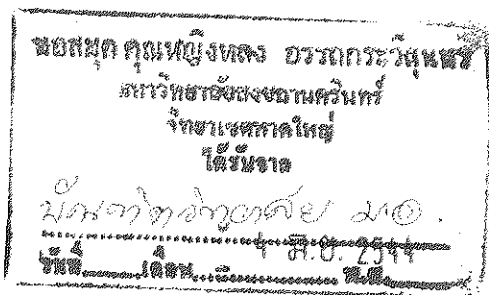 หอสมุด คุณหญิงหลง อรรถกระวีสุนทร
มหาวิทยาลัยสงขลานครินทร์
วิทยาเขตหาดใหญ่
ได้รับจาก
บัณฑิตวิทยาลัย ม.อ.
4 มิ.ย. 2544
วันที่ เดือน พ.ศ.